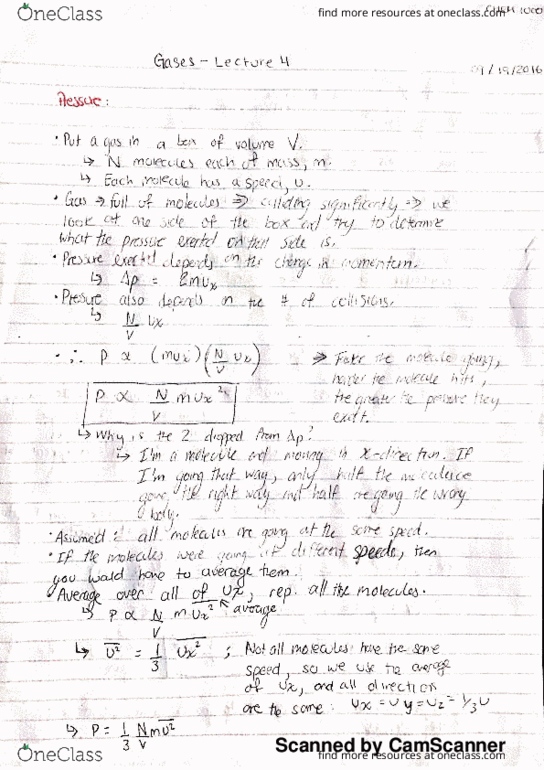 OneClass
find more resources at oneclass.com
Gases - Lecture 4
09/19/2016
Pressue:
• Put a gas in a box of volume V.
↳ N molecules each of mass, m.
↳ Each molecule has a speed, u.
• Gas → full of molecules ⇒ colliding significantly ⇒ we
look at one side of the box and try to determine
what the pressure exerted on that side is.
• Pressure exerted depends on the change in momentum.
↳ Δp = 2mux
• Pressure also depends on the # of collisions.
↳ N/V ux
• ∴ P ∝ (mux) (N/V ux)
⇒ Faster the molecule going,
harder the molecule hits,
the greater the pressure they
exert.
P ∝ N/V mux²
↳ Why is the 2 dropped from Δp?
↳ I'm a molecule and moving in x-direction. If
I'm going that way, only half the molecules
going the right way and half are going the wrong
• Assumed: all molecules are going at the same speed.
• If the molecules were going at different speeds, then
you would have to average them.
• Average over all of ux, rep. all the molecules.
↳ P ∝ N/V mux² ↖ average
↳ u² = 1/3 ux² ; Not all molecules have the same
speed, so we use the average
of ux, and all direction
are the same: ux = uy = uz = 1/3 u
↳ P = 1/3 N/V mu²
Scanned by CamScanner
OneClass
find more resources at oneclass.com